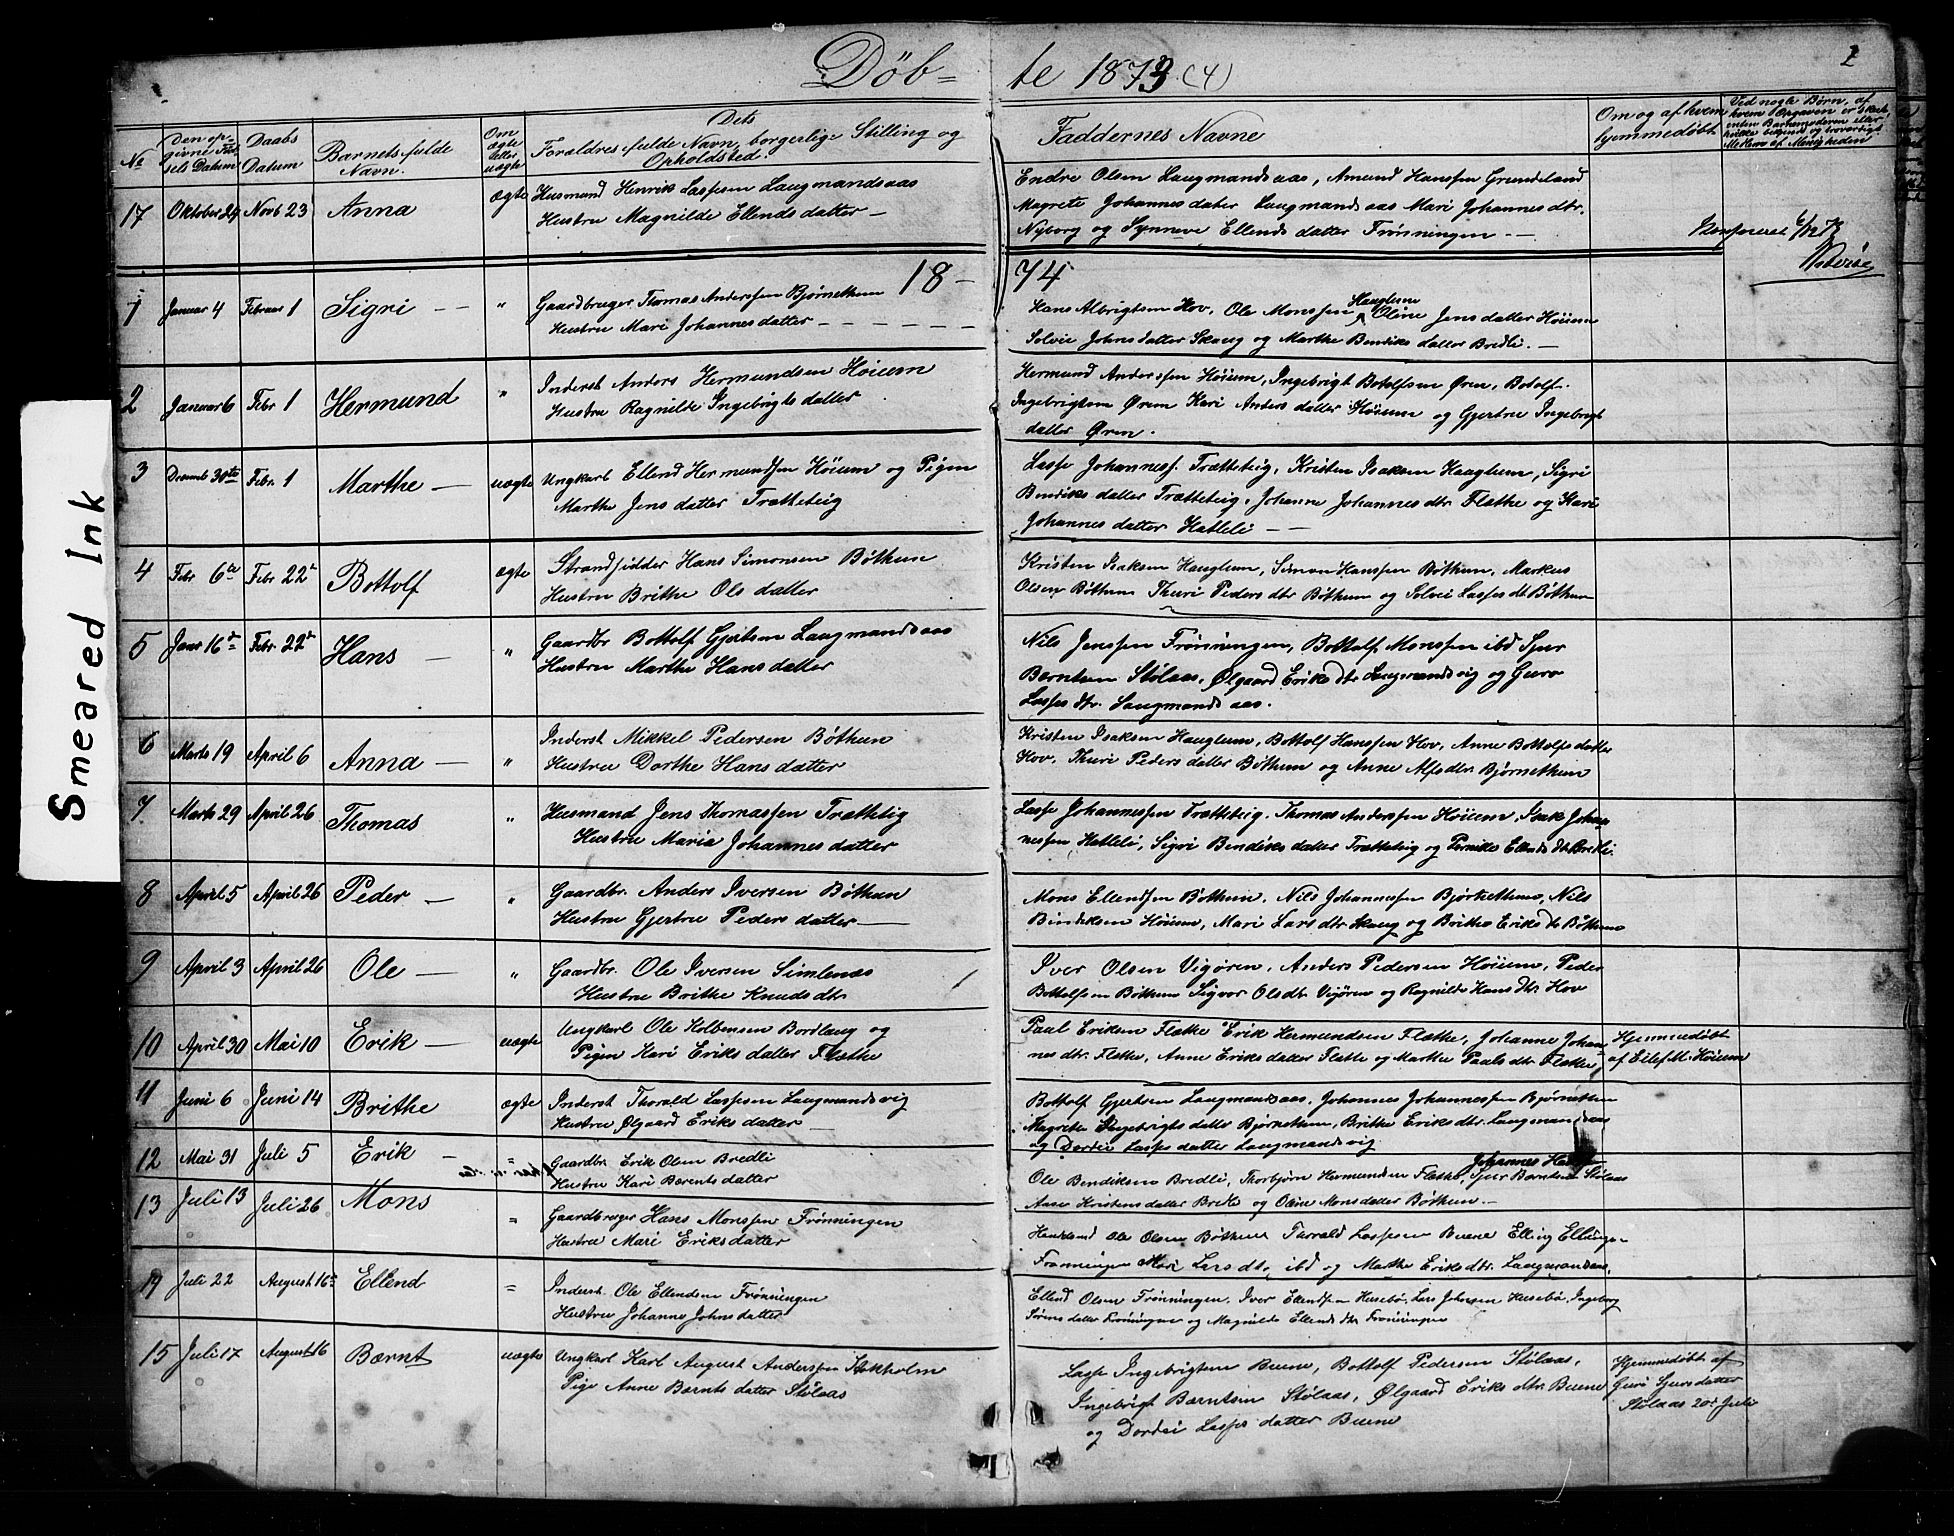 Döb- te 1873 (4)
2
Smeared Ink
No
Den op-
givne Fød-
sels Datum
Daabs
Datum
Barnets fulde
Navn.
Om
ægte
eller
uægte
Dets
Forældres fulde Navn, borgerlige Stilling og
Opholdsted.
Faddernes Navne
Om og af hvem
hjemmedøbt
Ved nogle Børn, af
hvem Opgaven er skeet,
enten Barnemoderen eller
hvilke bekjendte og troværdige
af Menigheden
17 Oktober 29 Novb 23 Anna ægte Husmand Henrik Lassesen Laugmandsaas
Hustru Magnilde Ellends datter —
Endre Olsen Laugmandsaas, Amund Hanssen Grundeland
Magrete Johannesdater Laugmandsaas Mari Johannesdtr.
Nyborg og Synneve Ellends datter Frønningen —
Konfereret 6/12 73
18- 74
1 Januar 4 Februar 1 Sigri — " Gaardbruger Thomas Anderssen Bjørnethun
Hustru Mari Johannesdatter
Hans Albrigtsen Hov, Ole Monssen Hauglum Oline Jensdatter Høium
Solvie Johnsdatter Skaug og Marthe Bendiks datter Bredli. —
2 Januar 6 Febr 1 Hermund " Inderst Anders Hermundsen Høium
Hustru Ragnilde Ingebrigts datter
Hermund Anderssen Høium, Ingebrigt Botolfsen Øren, Botolf
Ingebrigtsen Øren Kari Andersdatter Høium og Gjertru Ingebrigt
datter Øren.
3 Decemb 30te Febr. 1 Marthe — uægte Ungkarl Ellend Hermundsen Høium og Pigen
Marthe Jens datter Trætteteig
Lasse Johanness. Trætteteig, Kristen Isaksen Hauglum, Sigri
Bendiks datter Trætteteig, Johanne Johannesdtr. Flæthe og Kari
Johannes datter Hatleli —
4 Febr 6te Febr 22d Bottolf ægte Strandsidder Hans Simonsen Bøthun
Hustru Brithe Ols datter
Kristen Isaksen Hauglum, Simon Hanssen Bøthun, Markus
Olsen Bøthun Thuri Peders dtr Bøthun og Solvei Lasses dt Bøthun
5 Janr 16d Febr. 22d Hans — " Gaardbr Bottolf Gjertsen Laugmandsaas
Hustru Marthe Hans datter
Nils Jenssen Frønningen, Bottolf Monssen ibd Sjur
Bærntsen Stølaas, Ølgaard Eriks dtr Laugmandsvig og Guro
Lasses dtr. Laugmandsaas.
6 Marts 19 April 6 Anna — " Inderst Mikkel Pedersen Bøthun
Hustru Dorthe Hans datter
Kristen Isaksen Hauglum, Bottolf Hanssen Hov, Anne Bottolfsdatter
Hov. Thuri Peders datter Bøthun og Anne Alfsdtr. Bjørnethun
7. Marts 29 April 26 Thomas " Husmand Jens Thomassen Trætteteig
Hustru Maria Johannes datter
Lasse Johannessen Trætteteig. Thomas Anderssen Høium, Isak Johan-
nessen Hatleli, Sigri Bendiks datter Trætteteig og Pernille Ellends dtr Bredli.
8 April 5 April 26 Peder — " Gaardbr. Anders Iversen Bøthun
Hustru Gjertru Peders datter —
Mons Ellendsen Bøthun, Nils Johannessen Bjørkethun, Nils
Bendiksen Høium, Mari Lars dtr Skaug og Brithe Eriks dt Bøthun
9 April 3 April 26 Ole — " Gaardbr. Ole Iversen Simlenæs
Hustru Brithe Knuds dtr.
Iver Olsen Vigøren. Anders Pedersen Høium, Peder
Bottolfsen Bøthun Sigvor Olsdtr. Vigøren og Ragnilde Hans dtr Hov
10 April 30 Mai 10 Erik — uægte Ungkarl Ole Kolbensen Bordlaug og
Pigen Kari Eriks datter Flæthe
Paul Eriksen Flæthe Erik Hermundsen Flæthe, Johanne Johan-
nes dtr. Flæthe, Anne Eriks datter Flæthe og Marthe Pauls dtr. Flæthe
Hjemmedøbt
af Ellef M. Høium
11 Juni 6 Juni 14 Brithe ægte Inderst Thorald Lassesen Laugmandsvig
Hustru Ølgaard Eriks datter —
Bottolf Gjertsen Laugmandsaas, Johannes Johannessen Bjørnethun
Magrete Ingebrigts datter Bjørnethun, Brithe Eriksdtr. Laugmandsaas
og Dordei Lasses datter Laugmandsvig
12 Mai 31 Juli 5 Erik — Gaardbr. Erik Olsen Bredli
Hustru Kari Bærents datter
Johannes
Ole Bendiksen Bredli, Thorbjørn Hermundsen Flæthe, Sjur Bærntsen Stølaas
Aase Kristens datter Bredli og Oline Monsdatter Bøthun.—
13 Juli 13 Juli 26 Mons = Gaardbruger Hans Monssen Frønningen
Hustru Mari Eriksdatter
Ole Olsen Bøthun Thorald Lassesen Buene Elling Ellings-
Frønningen Mari Larsdtr. ibd og Marthe Eriksdtr. Laugmandsaas.
14 Juli 22 August 16 Ellend = Inderst. Ole Ellendsen Frønningen
Hustru Johanne Johns datter
Ellend Olsen Frønningen, Iver Ellendsen Husebø, Lars Johnsen Husebø, Ingeborg
Sørens datter Frønningen og Magnilde Ellends dtr Frønningen
15 Juli 17 August 16 Bærnt uægte Ungkarl Karl August Anderssen Stokholm
Pige Anne Bærnts datter Stølaas
Lasse Ingebrigtsen Buene, Bottolf Pedersen Stølaas,
Ingebrigt Bærntsen Stølaas, Ølgaard Eriks dtr. Buene
og Dordei Lasses datter Buene
Hjemmedøbt af
Guro Sjursdatter
Stølaas 20d Juli